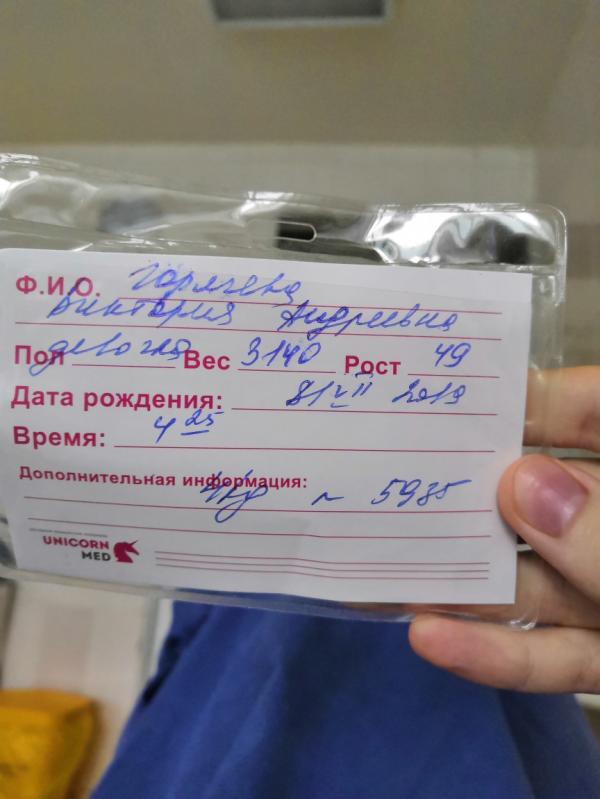 Ф.И.О. Горячева
Виктория Андреевна
Пол девочка Вес 3140 Рост 49
Дата рождения: 2019
Время: 4 25
Дополнительная информация:
5985
UNICORN
MED